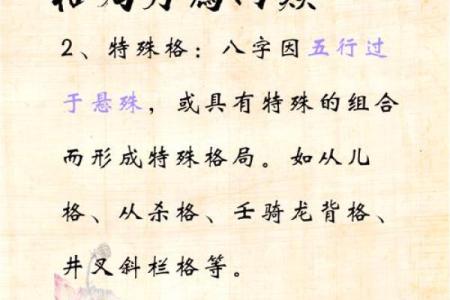 格局分为两类
2、特殊格：八字因五行过
于悬殊，或具有特殊的组合
而形成特殊格局。如从儿
格、从杀格、壬骑龙背格、
井叉斜栏格等。